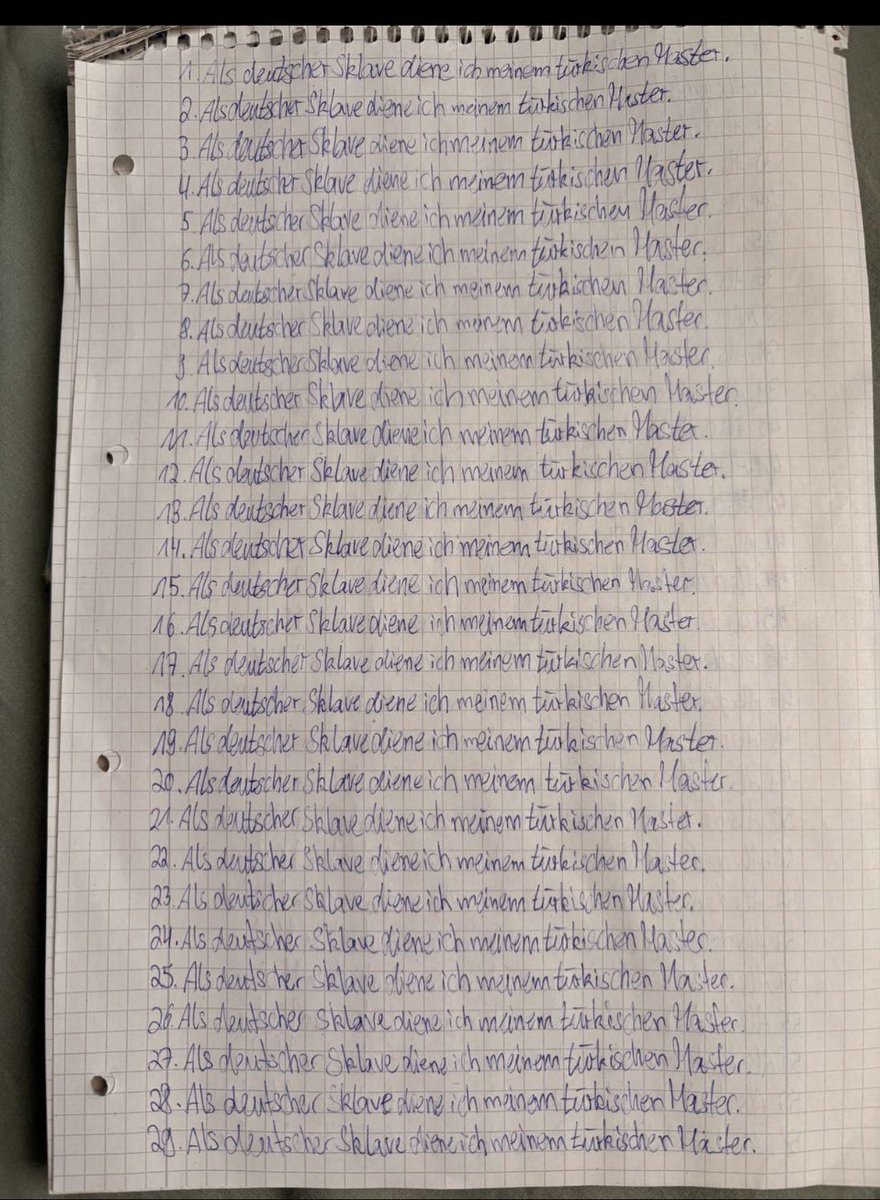 1. Als deutscher Sklave diene ich meinem türkischen Master.
2. Als deutscher Sklave diene ich meinem türkischen Master.
3 Als deutscher Sklave diene ich meinem türkischen Master.
4. Als deutscher Sklave diene ich meinem türkischen Master.
5. Als deutscher Sklave diene ich meinem türkischen Master.
6. Als deutscher Sklave diene ich meinem türkischen Master.
7. Als deutscher Sklave diene ich meinem türkischen Master.
8. Als deutscher Sklave diene ich meinem türkischen Master.
9. Als deutscher Sklave diene ich meinem türkischen Master.
10. Als deutscher Sklave diene ich meinem türkischen Master.
11. Als deutscher Sklave diene ich meinem türkischen Master.
12. Als deutscher Sklave diene ich meinem türkischen Master.
13. Als deutscher Sklave diene ich meinem türkischen Master.
14. Als deutscher Sklave diene ich meinem türkischen Master.
15. Als deutscher Sklave diene ich meinem türkischen Master.
16. Als deutscher Sklave diene ich meinem türkischen Master.
17. Als deutscher Sklave diene ich meinem türkischen Master.
18. Als deutscher Sklave diene ich meinem türkischen Master.
19. Als deutscher Sklave diene ich meinem türkischen Master.
20. Als deutscher Sklave diene ich meinem türkischen Master.
21. Als deutscher Sklave diene ich meinem türkischen Master.
22. Als deutscher Sklave diene ich meinem türkischen Master.
23. Als deutscher Sklave diene ich meinem türkischen Master.
24. Als deutscher Sklave diene ich meinem türkischen Master.
25. Als deutscher Sklave diene ich meinem türkischen Master.
26. Als deutscher Sklave diene ich meinem türkischen Master.
27. Als deutscher Sklave diene ich meinem türkischen Master.
28. Als deutscher Sklave diene ich meinem türkischen Master.
29. Als deutscher Sklave diene ich meinem türkischen Master.